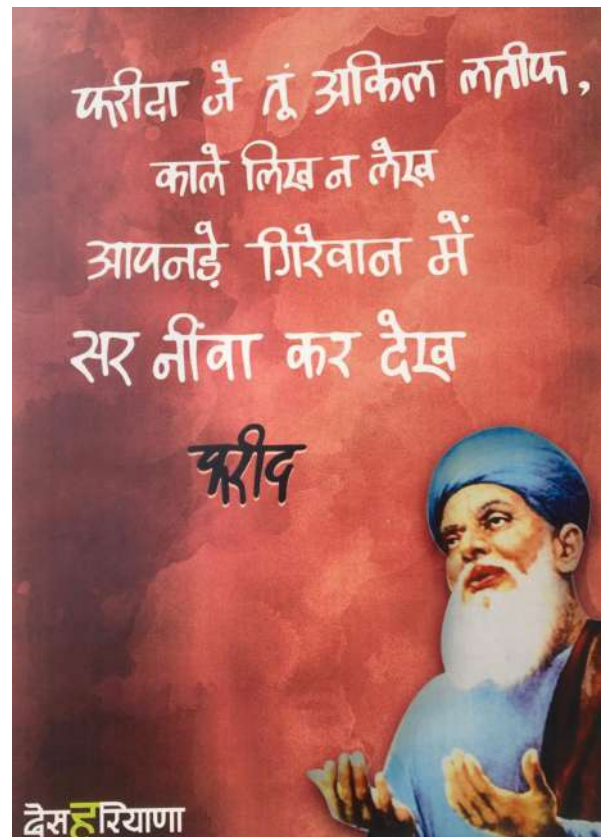 फरीदा जे तूं अकिल लतीफ,
काले लिख न लेख
आपनड़े गिरेवान में
सर नींवा कर देख
फरीद
देसहरियाणा